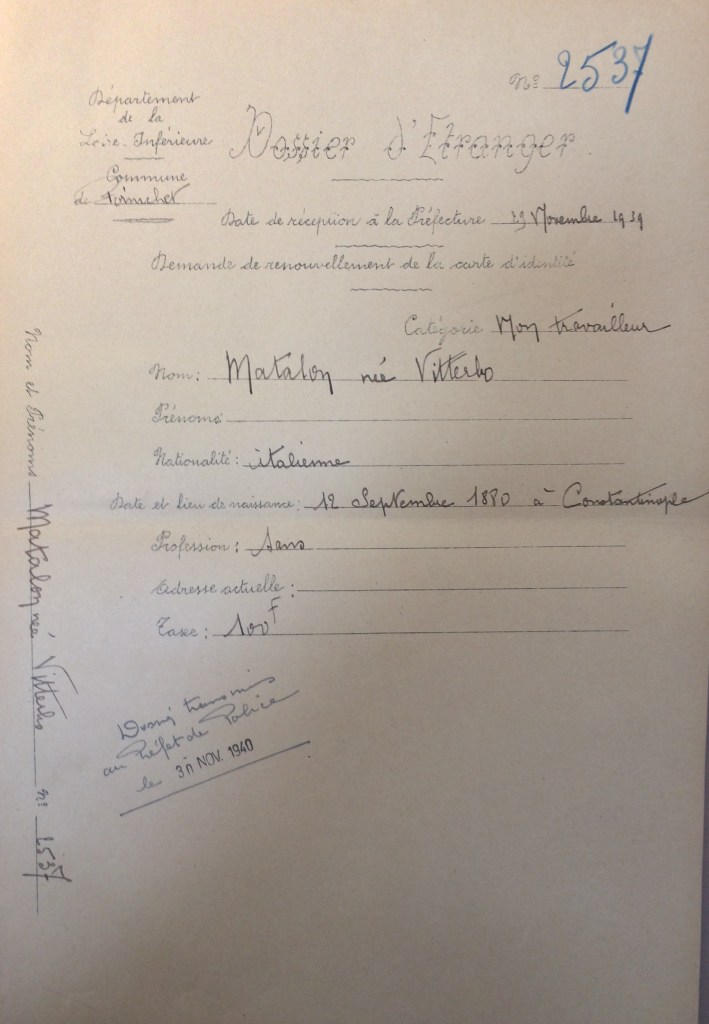 Nº 2537
Département
de la
Loire-Inférieure
Commune
de Pornichet
Dossier d'Etranger.
Date de réception à la Préfecture Novembre 1939
Demande de renouvellement de la carte d'identité
Catégorie Non travailleur
Nom: Matalon née Vitterbo
Prénoms
Nationalité: italienne
Date et lieu de naissance: 12 Septembre 1880 à Constantinople
Profession: Sans
Adresse actuelle:
Taxe: 100F
Dossier transmis
au Préfet de Police
le NOV. 1940
Nom et Prénoms Matalon née Vitterbo nº 2537